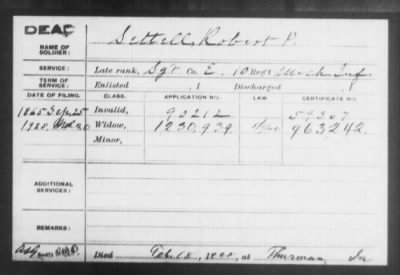 DEAF
NAME OF SOLDIER: Settell, Robert P.
SERVICE: Late rank, Sgt Co. E, 10 Reg't Mich Inf
TERM OF SERVICE: Enlisted , 1 Discharged , 1
DATE OF FILING. CLASS. APPLICATION NO. LAW. CERTIFICATE NO.
1865 Sep 25 Invalid, 93212
Widow, 1230,939 963242
Minor,
ADDITIONAL SERVICES:
REMARKS:
Died Feb , 1900, at Thurman, Ia